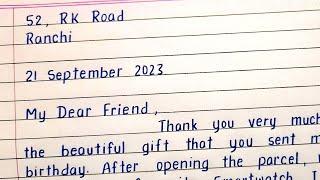 52, RK Road
Ranchi
21 September 2023
My Dear Friend,
Thank you very much
the beautiful gift that you sent m
birthday. After opening the parcel,
Smartwatch. I